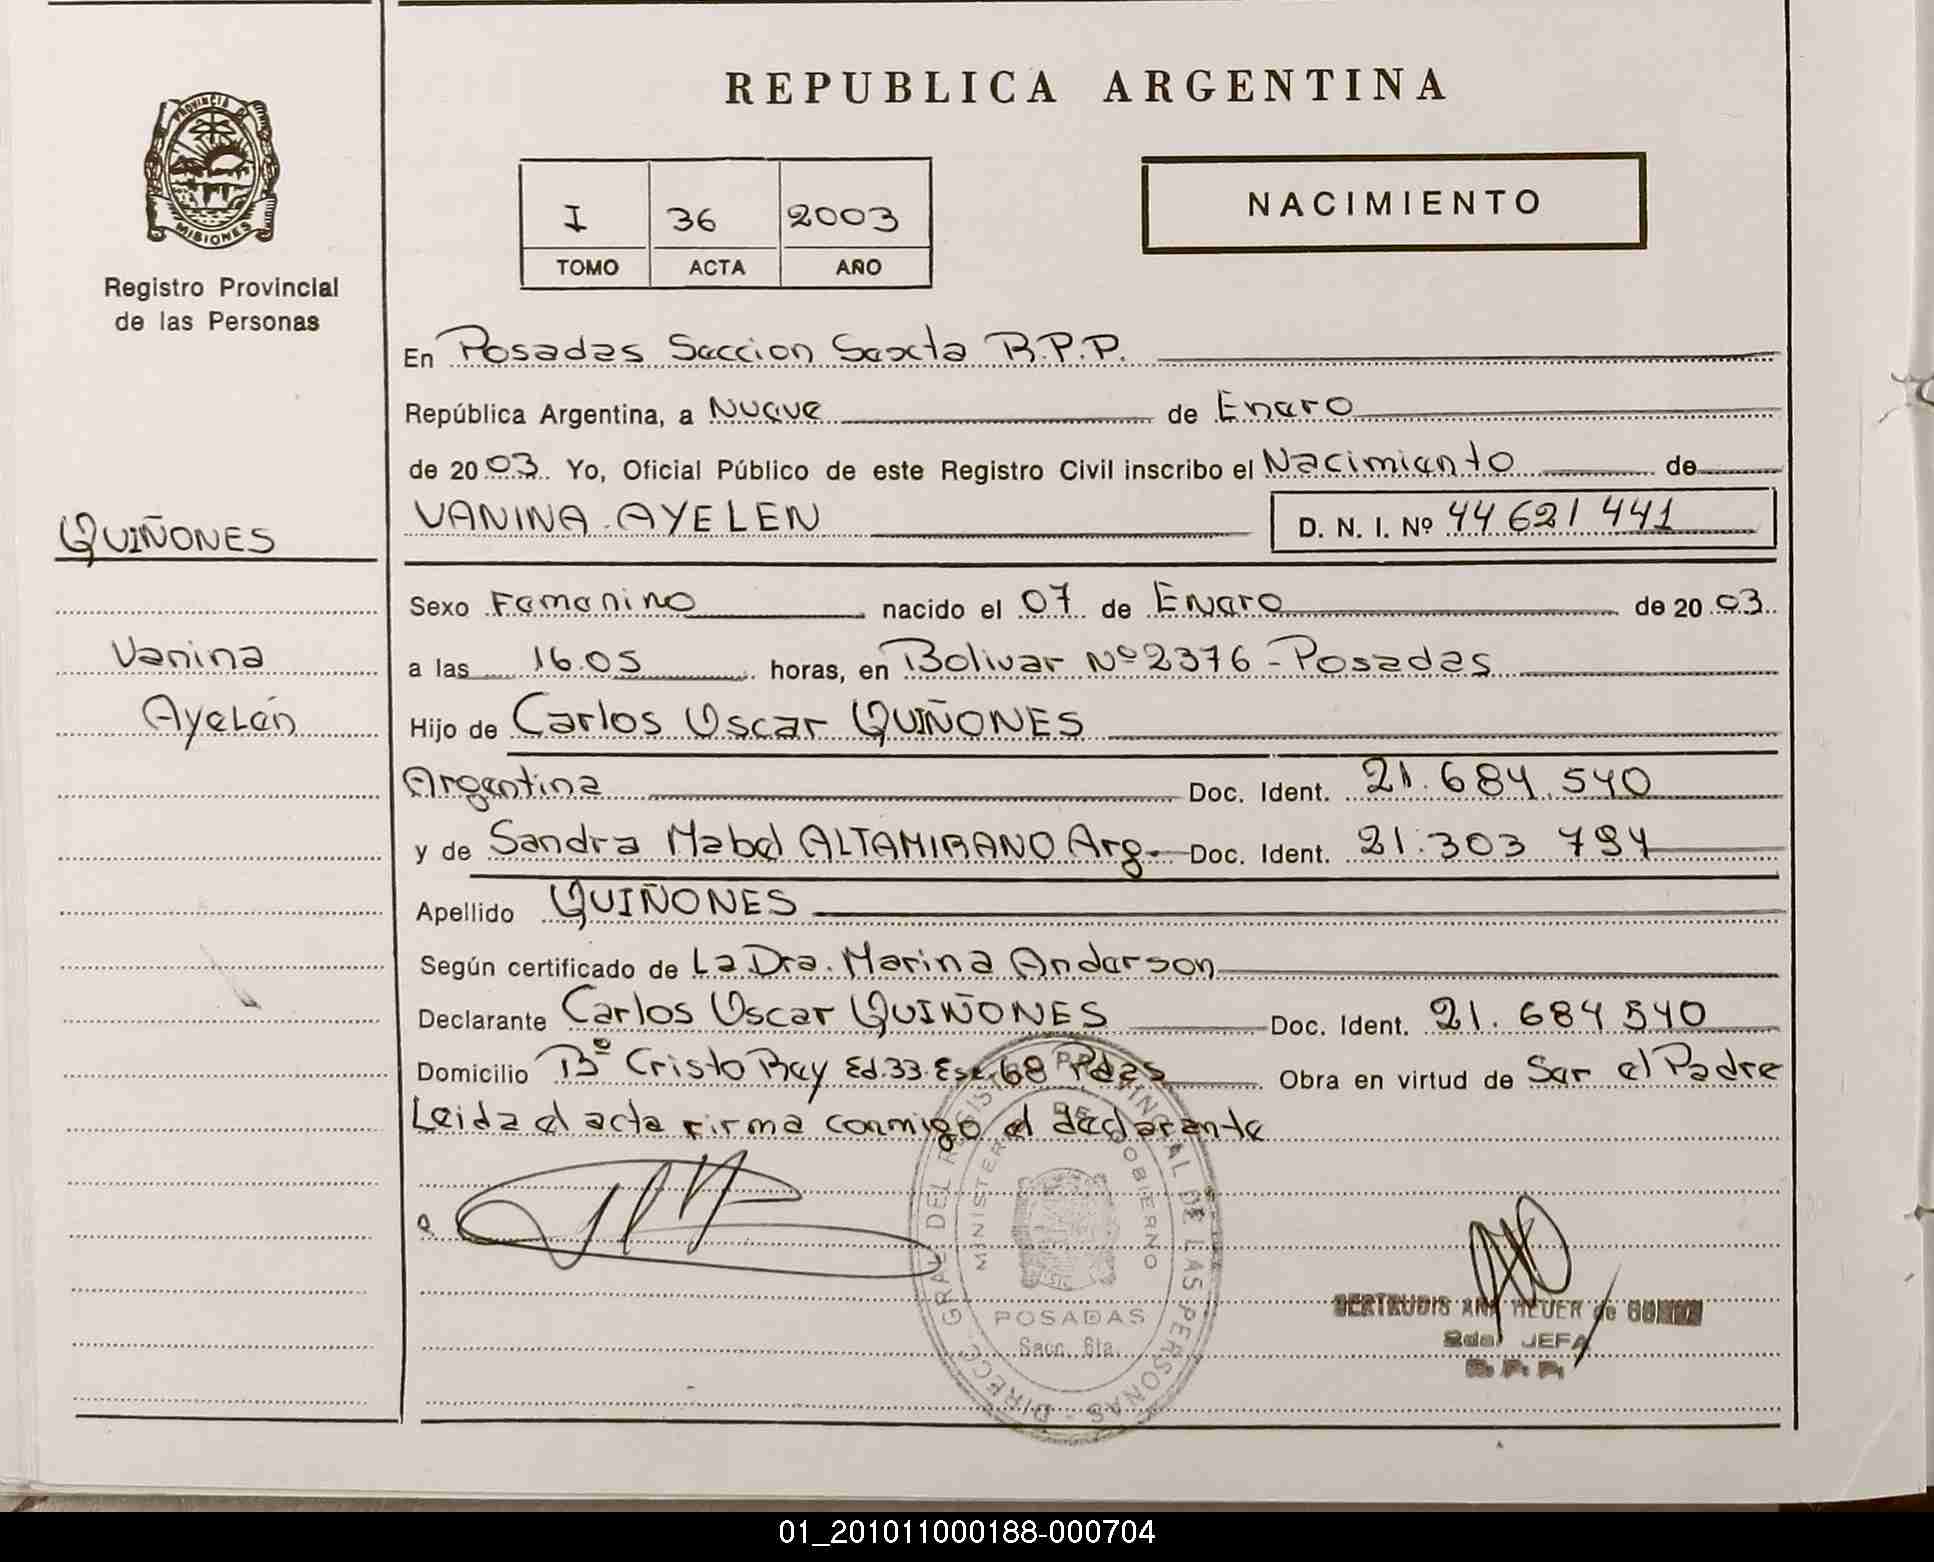 REPUBLICA ARGENTINA
PROVINCIA DE
MISIONES
Registro Provincial
de las Personas
I 36 2003
TOMO ACTA AÑO
NACIMIENTO
En Posadas Seccion Sexta R.P.P.
República Argentina, a Nueve de Enero
de 2003. Yo, Oficial Público de este Registro Civil inscribo el Nacimiento de
VANINA AYELEN D. N. I. Nº 44 621 441
QUIÑONES
Sexo Femenino nacido el 07 de Enero de 2003.
Vanina
a las 16.05 horas, en Bolivar Nº 2376 - Posadas
Ayelén
Hijo de Carlos Oscar QUIÑONES
Argentina Doc. Ident. 21.684.540
y de Sandra Mabel ALTAMIRANO Arg. Doc. Ident. 21.303 794
Apellido QUIÑONES
Según certificado de La Dra. Marina Anderson
Declarante Carlos Oscar QUIÑONES Doc. Ident. 21.684 540
Domicilio Bº Cristo Rey Ed.33. Esc. 68 Pdas Obra en virtud de Ser el Padre
Leida el acta firma conmigo el declarante
DIRECC. GRAL DEL REGISTRO PROVINCIAL DE LAS PERSONAS
MINISTERIO DE GOBIERNO
POSADAS
Secc. 6ta.
GERTRUDIS ANA HEUER de
2da. JEFA
R. P. P.
01_201011000188-000704